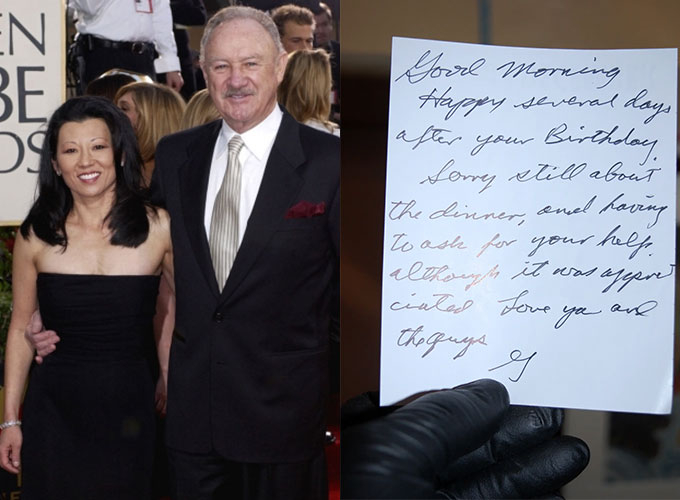 EN
BE
DS
Good Morning
Happy several days
after your Birthday.
Sorry still about
the dinner, and having
to ask for your help
although it was appre
ciated Love ya and
the guys
G